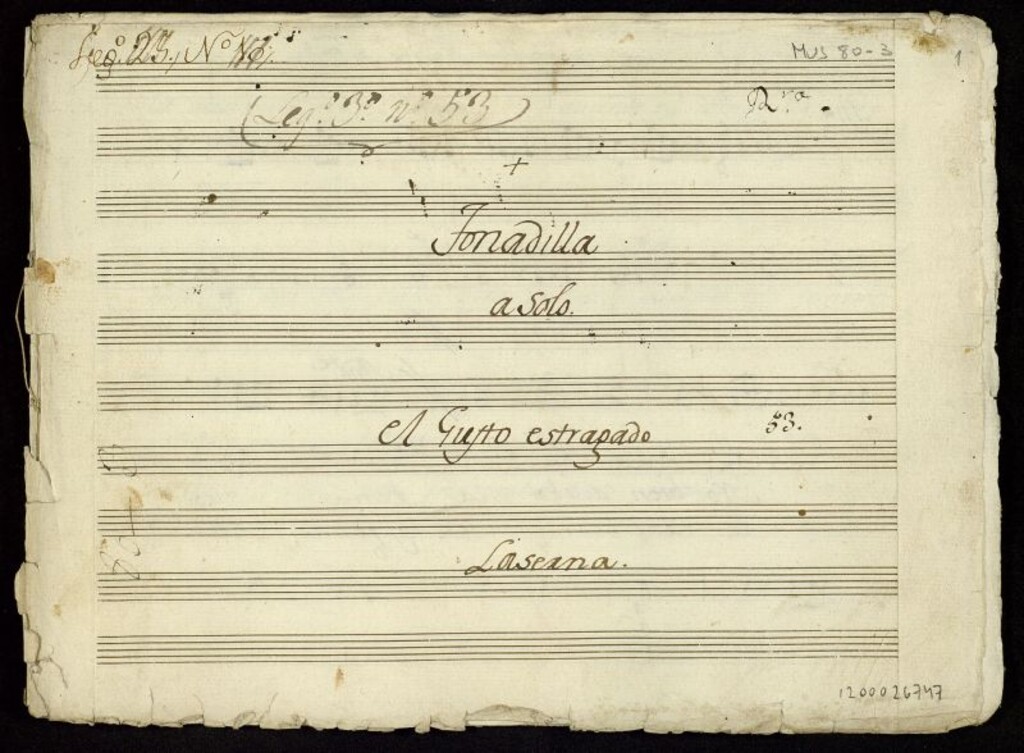 Leg.º 23., N.º
MUS 80-3
1
(Leg.º 3.º n.º 53)
R.ra
Tonadilla
a Solo.
el Gusto estragado
53.
Laserna.
1200026747